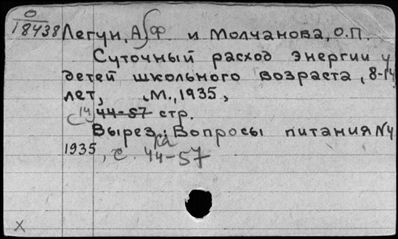 О
18438 Легун, А.Ф. и Молчанова, О.П.
Суточный расход энергии у
детей школьного возраста, 8-14
лет, М., 1935,
с. 14 44-57 стр.
Вырезка: Вопросы питания №4
1935, с. 44-57
х